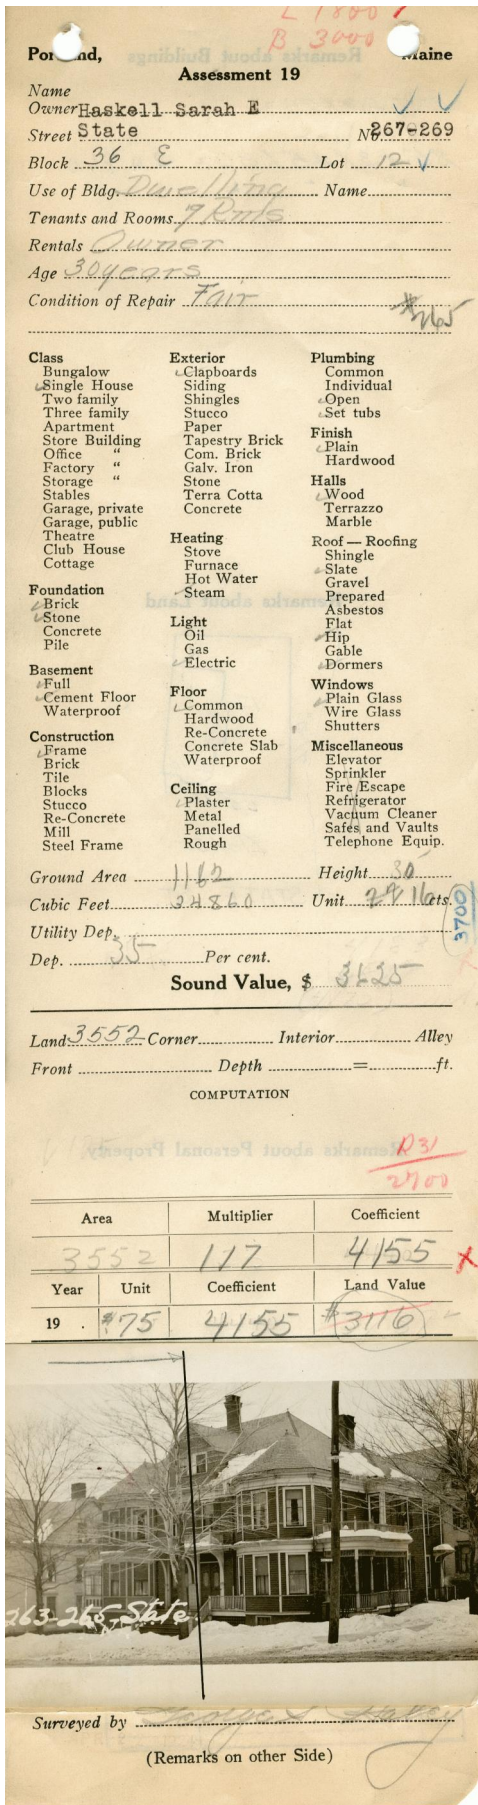 L 1800
B 3000
Portland, Maine
Assessment 19
Name
Owner Haskell Sarah E
Street State No 267-269
Block 36 E Lot 12
Use of Bldg. Dwelling Name
Tenants and Rooms 9 Rms
Rentals Owner
Age 30 years
Condition of Repair Fair
Class
Bungalow
Single House
Two family
Three family
Apartment
Store Building
Office "
Factory "
Storage "
Stables
Garage, private
Garage, public
Theatre
Club House
Cottage
Foundation
Brick
Stone
Concrete
Pile
Basement
Full
Cement Floor
Waterproof
Construction
Frame
Brick
Tile
Blocks
Stucco
Re-Concrete
Mill
Steel Frame
Exterior
Clapboards
Siding
Shingles
Stucco
Paper
Tapestry Brick
Com. Brick
Galv. Iron
Stone
Terra Cotta
Concrete
Heating
Stove
Furnace
Hot Water
Steam
Light
Oil
Gas
Electric
Floor
Common
Hardwood
Re-Concrete
Concrete Slab
Waterproof
Ceiling
Plaster
Metal
Panelled
Rough
Plumbing
Common
Individual
Open
Set tubs
Finish
Plain
Hardwood
Halls
Wood
Terrazzo
Marble
Roof — Roofing
Shingle
Slate
Gravel
Prepared
Asbestos
Flat
Hip
Gable
Dormers
Windows
Plain Glass
Wire Glass
Shutters
Miscellaneous
Elevator
Sprinkler
Fire Escape
Refrigerator
Vacuum Cleaner
Safes and Vaults
Telephone Equip.
Ground Area 1162 Height 30
Cubic Feet 34860 Unit 16 cts.
3700
Utility Dep.
Dep. 35 Per cent.
Sound Value, $ 3625
Land 3552 Corner Interior Alley
Front Depth = ft.
COMPUTATION
R31
2700
Area Multiplier Coefficient
3552 117 4155 x
Year Unit Coefficient Land Value
19 . $.75 4155 $3116
263-265-State
Surveyed by
(Remarks on other Side)